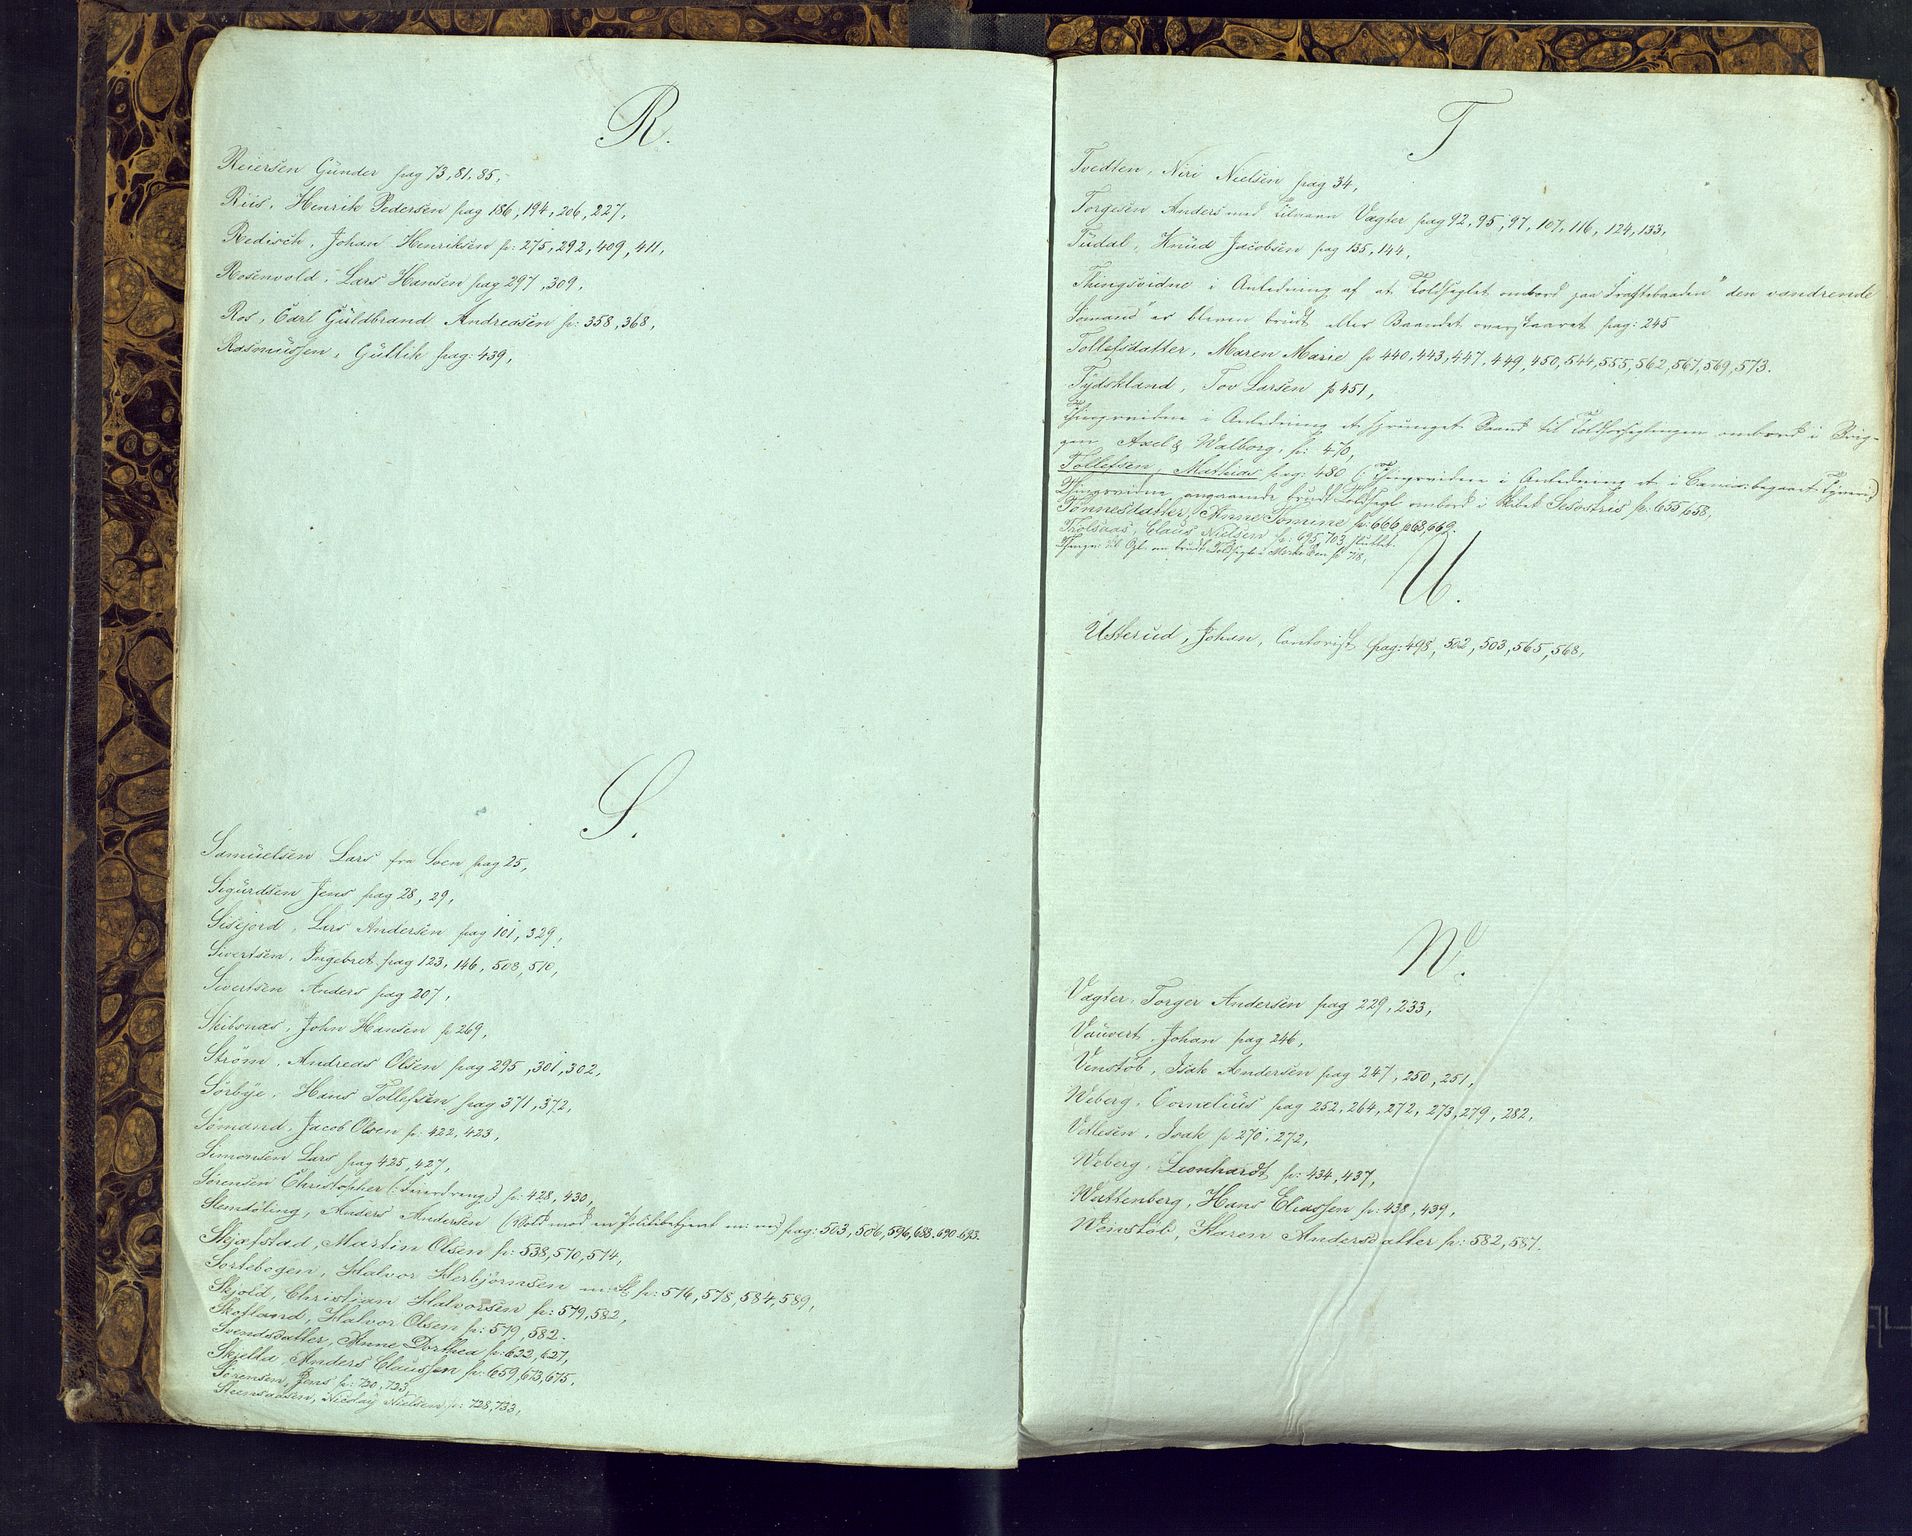 R.
Reiersen Günder pag 73, 81, 85,
Riis, Henrik Pedersen pag 186, 194, 206, 227,
Redisch, Johan Henriksen p: 275, 292, 409, 411,
Rosenvold, Lars Hansen pag 297, 309,
Ros, Carl Güldbrand Andreasen p: 358, 368,
Rasmüssen, Güttik pag: 439,
S.
Samüelsen Lars fra Soen pag 25,
Sigürdsen Jens pag 28, 29,
Sisejord, Lars Andersen pag 101, 329,
Sivertsen, Ingebret pag 123, 146, 508, 510,
Sivertsen Anders pag 207,
Skibsnæs, John Hansen p 269,
Strøm, Andreas Olsen pag 295, 301, 302,
Sørbye, Hans Tollefsen pag 371, 372,
Sømand, Jacob Olsen p: 422, 423,
Simonsen Lars pag 425, 427,
Sørensen Christopher p: 428, 430,
Slemdøling, Anders Andersen (Vold mod en Politibetjent m: m:) pag: 503, 506, 596, 688. 690. 693.
Skjæfstad, Martin Olsen p: 538, 570, 574,
Sortebogen, Halvor Herbjørnsen m: fl: p: 576, 578, 584, 589,
Skjold, Christian Halvorsen p: 579, 582,
Skofland, Halvor Olsen p: 579, 582.
Svendsdatter, Anne Dorthea p: 622, 627,
Skjelld, Anders Claussen p: 659, 673, 675.
Sørensen, Jens p: 720, 723,
Steensaasen, Nicolay Nielsen p: 728, 733,
T
Tvedten, Niri Nielsen pag 34,
Torgesen Anders med Tilnavn Vægter pag 92, 95, 97, 107, 116, 124, 133,
Tüdal, Knüd Jacobsen pag 135, 144,
Thingsvidne i Anledning af at Toldseglet ombord paa Dræftebaaden "den vandrende
Sømand" er bleven brudt eller Baandet overskaaret pag: 245
Tollefsdatter, Maren Marie p 440, 443, 447, 449, 450, 544, 555, 562, 567, 569, 573.
Tydskland, Tov Larsen p 451,
Thingsvidne i Anledning et sprunget Baand til Toldforseglingen ombord i Brig-
gen Axel & Walborg, p: 470,
Tollefsen, Mathias pag: 480 (: Thingsvidne i Anledning et i begaaet Tyveri)
Thingsvidne angaaende brudt Toldsegl ombord i Skibet Sesostris p: 655, 658,
Tønnesdatter, Anne Tomine p: 666, 668, 669.
Trolsaas, Claus Nielsen p: 695, 703 sluttet.
Thingsv: om brudt Toldsegl p 718,
U.
Usterud, Johan, Contorist pag: 498, 502, 503, 565, 568,
W.
Vægter, Torger Andersen pag 229, 233,
Vauvert, Johan pag 246,
Venstøb, Isak Andersen pag 247, 250, 251,
Weberg, Cornelius pag 252, 264, 272, 273, 279, 282,
Vetlesen, Isak p 270, 272,
Weberg, Leonhardt p: 434, 437,
Wattenberg, Hans Eliassen p: 438, 439,
Wenstøb, Karen Andersdatter p: 582, 587.